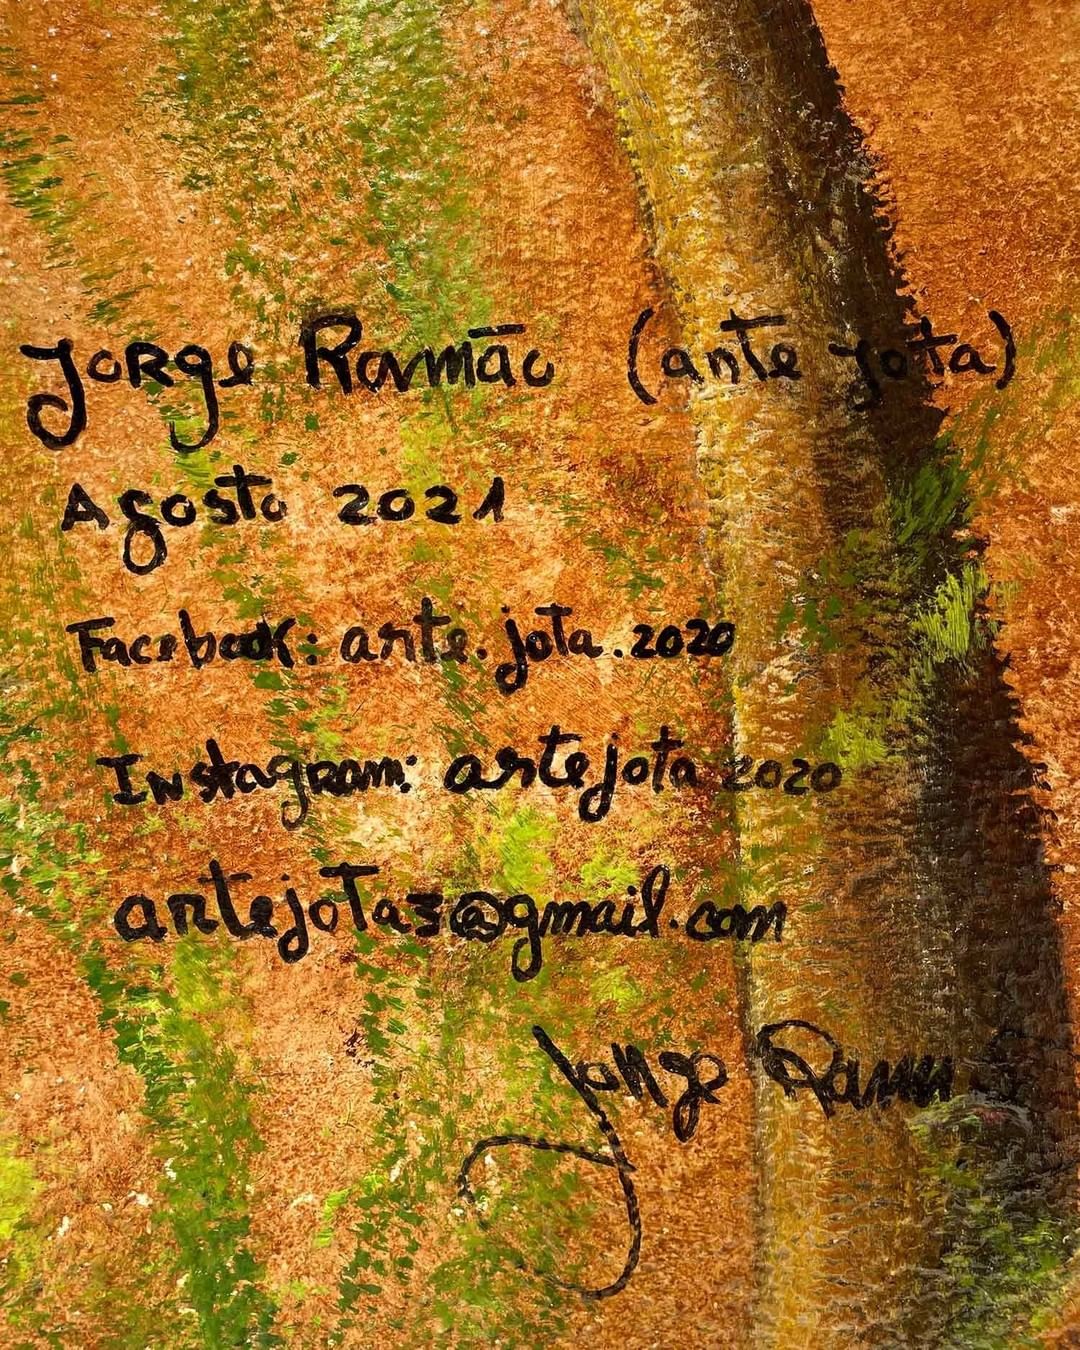 Jorge Ramão (arte jota)
Agosto 2021
Facebook: arte.jota.2020
Instagram: artejota2020
artejota3@gmail.com
Jorge Ramão